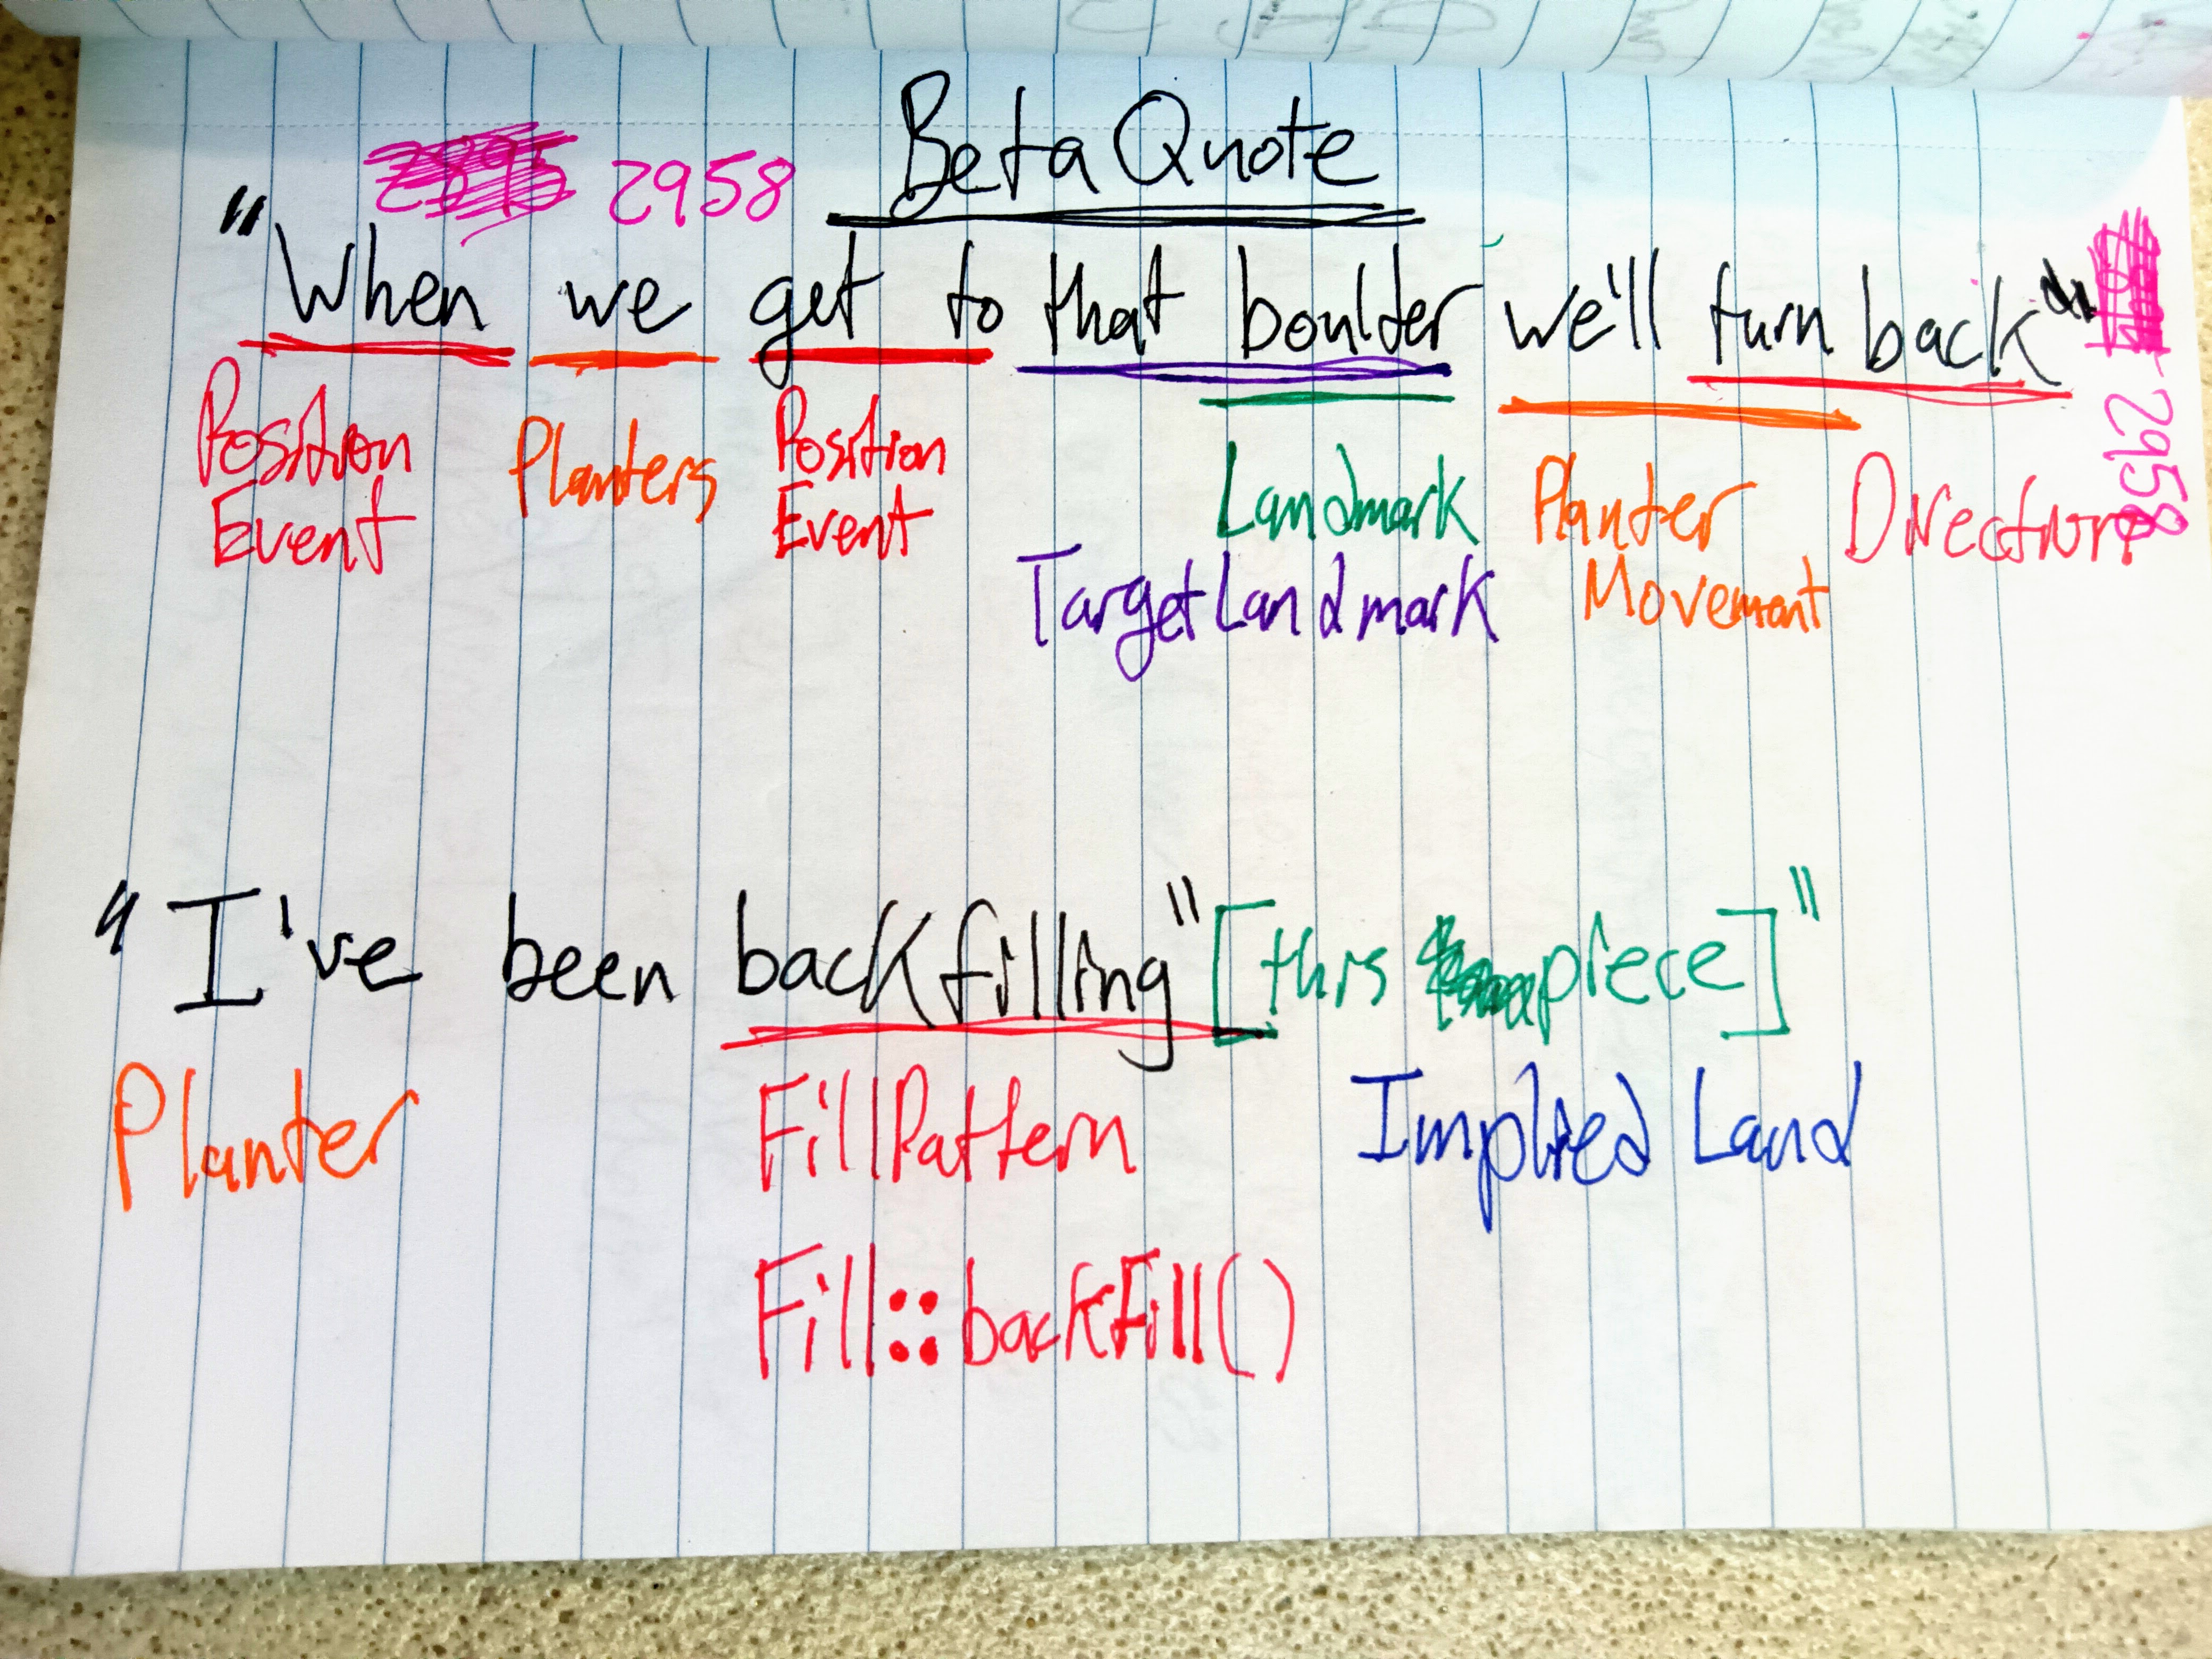 BetaQuote
2958
"When we get to that boulder we'll turn back"
2958
Position Event
Planters
Position Event
Landmark
TargetLandmark
Planter Movement
Direction
"I've been backfilling" [this piece]"
Planter
FillPattern
Implied Land
Fill::backfill()